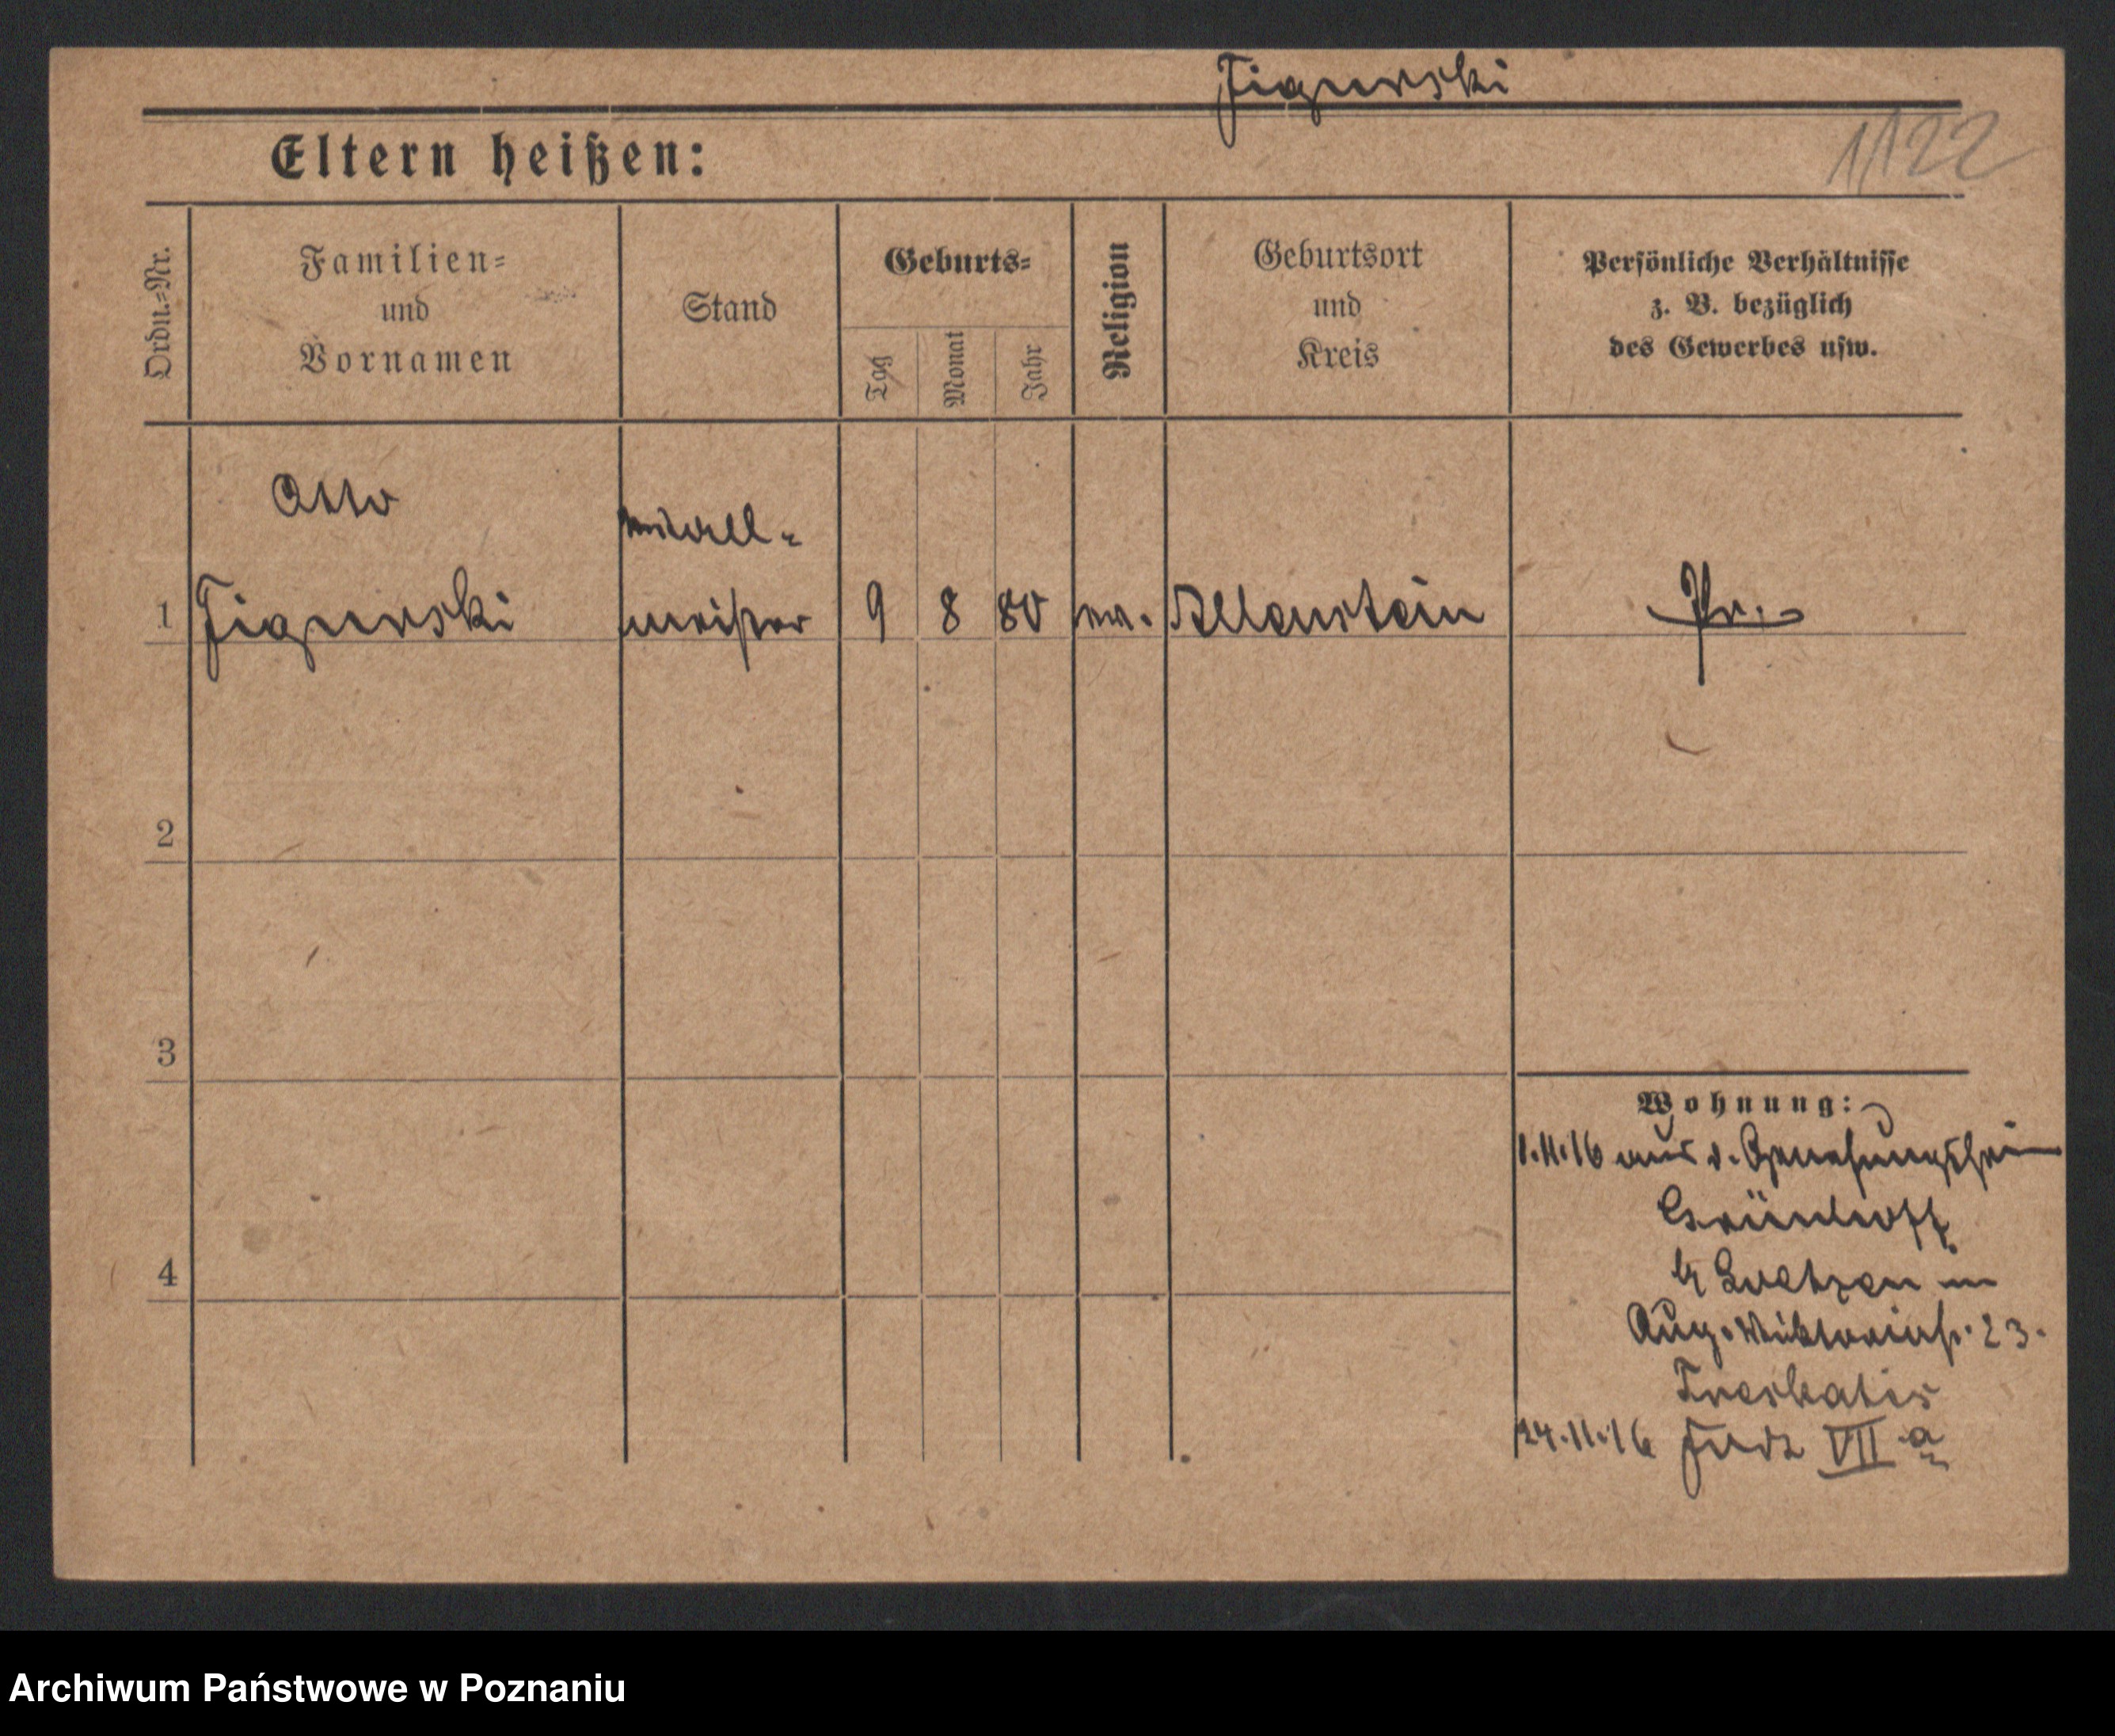 Figurski
1/122
Eltern heißen:
Ordn.=Nr.
Familien=
und
Vornamen
Stand
Geburts=
Tag
Monat
Jahr
Religion
Geburtsort
und
Kreis
Persönliche Verhältnisse
z. B. bezüglich
des Gewerbes usw.
Otto
Figurski
meister
9 8 80
Allenstein
Pr.
1
2
3
4
Wohnung:
1.11.16 aus d. Genesungsheim
Grünhoff
Loetzen
Aug. Viktoriastr. 23.
24.11.16 Fort VII a
Archiwum Państwowe w Poznaniu